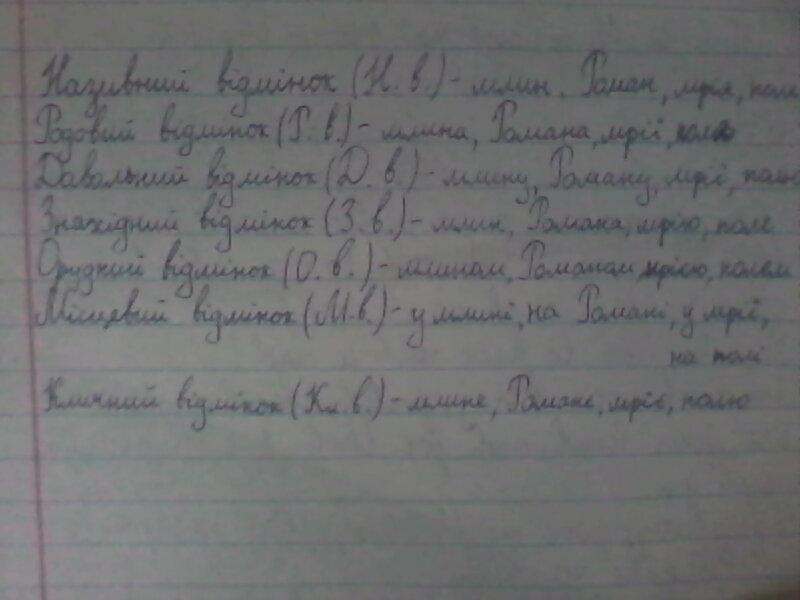 Називний відмінок (Н. в.) - млин, Роман, мрія, поле
Родовий відмінок (Р. в.) - млина, Романа, мрії, поля
Давальний відмінок (Д. в.) - млину, Роману, мрії, полю
Знахідний відмінок (З. в.) - млин, Романа, мрію, поле
Орудний відмінок (О. в.) - млином, Романом, мрією, полем
Місцевий відмінок (М. в.) - у млині, на Романі, у мрії,
на полі
Кличний відмінок (Кл. в.) - млине, Романе, мріє, полю